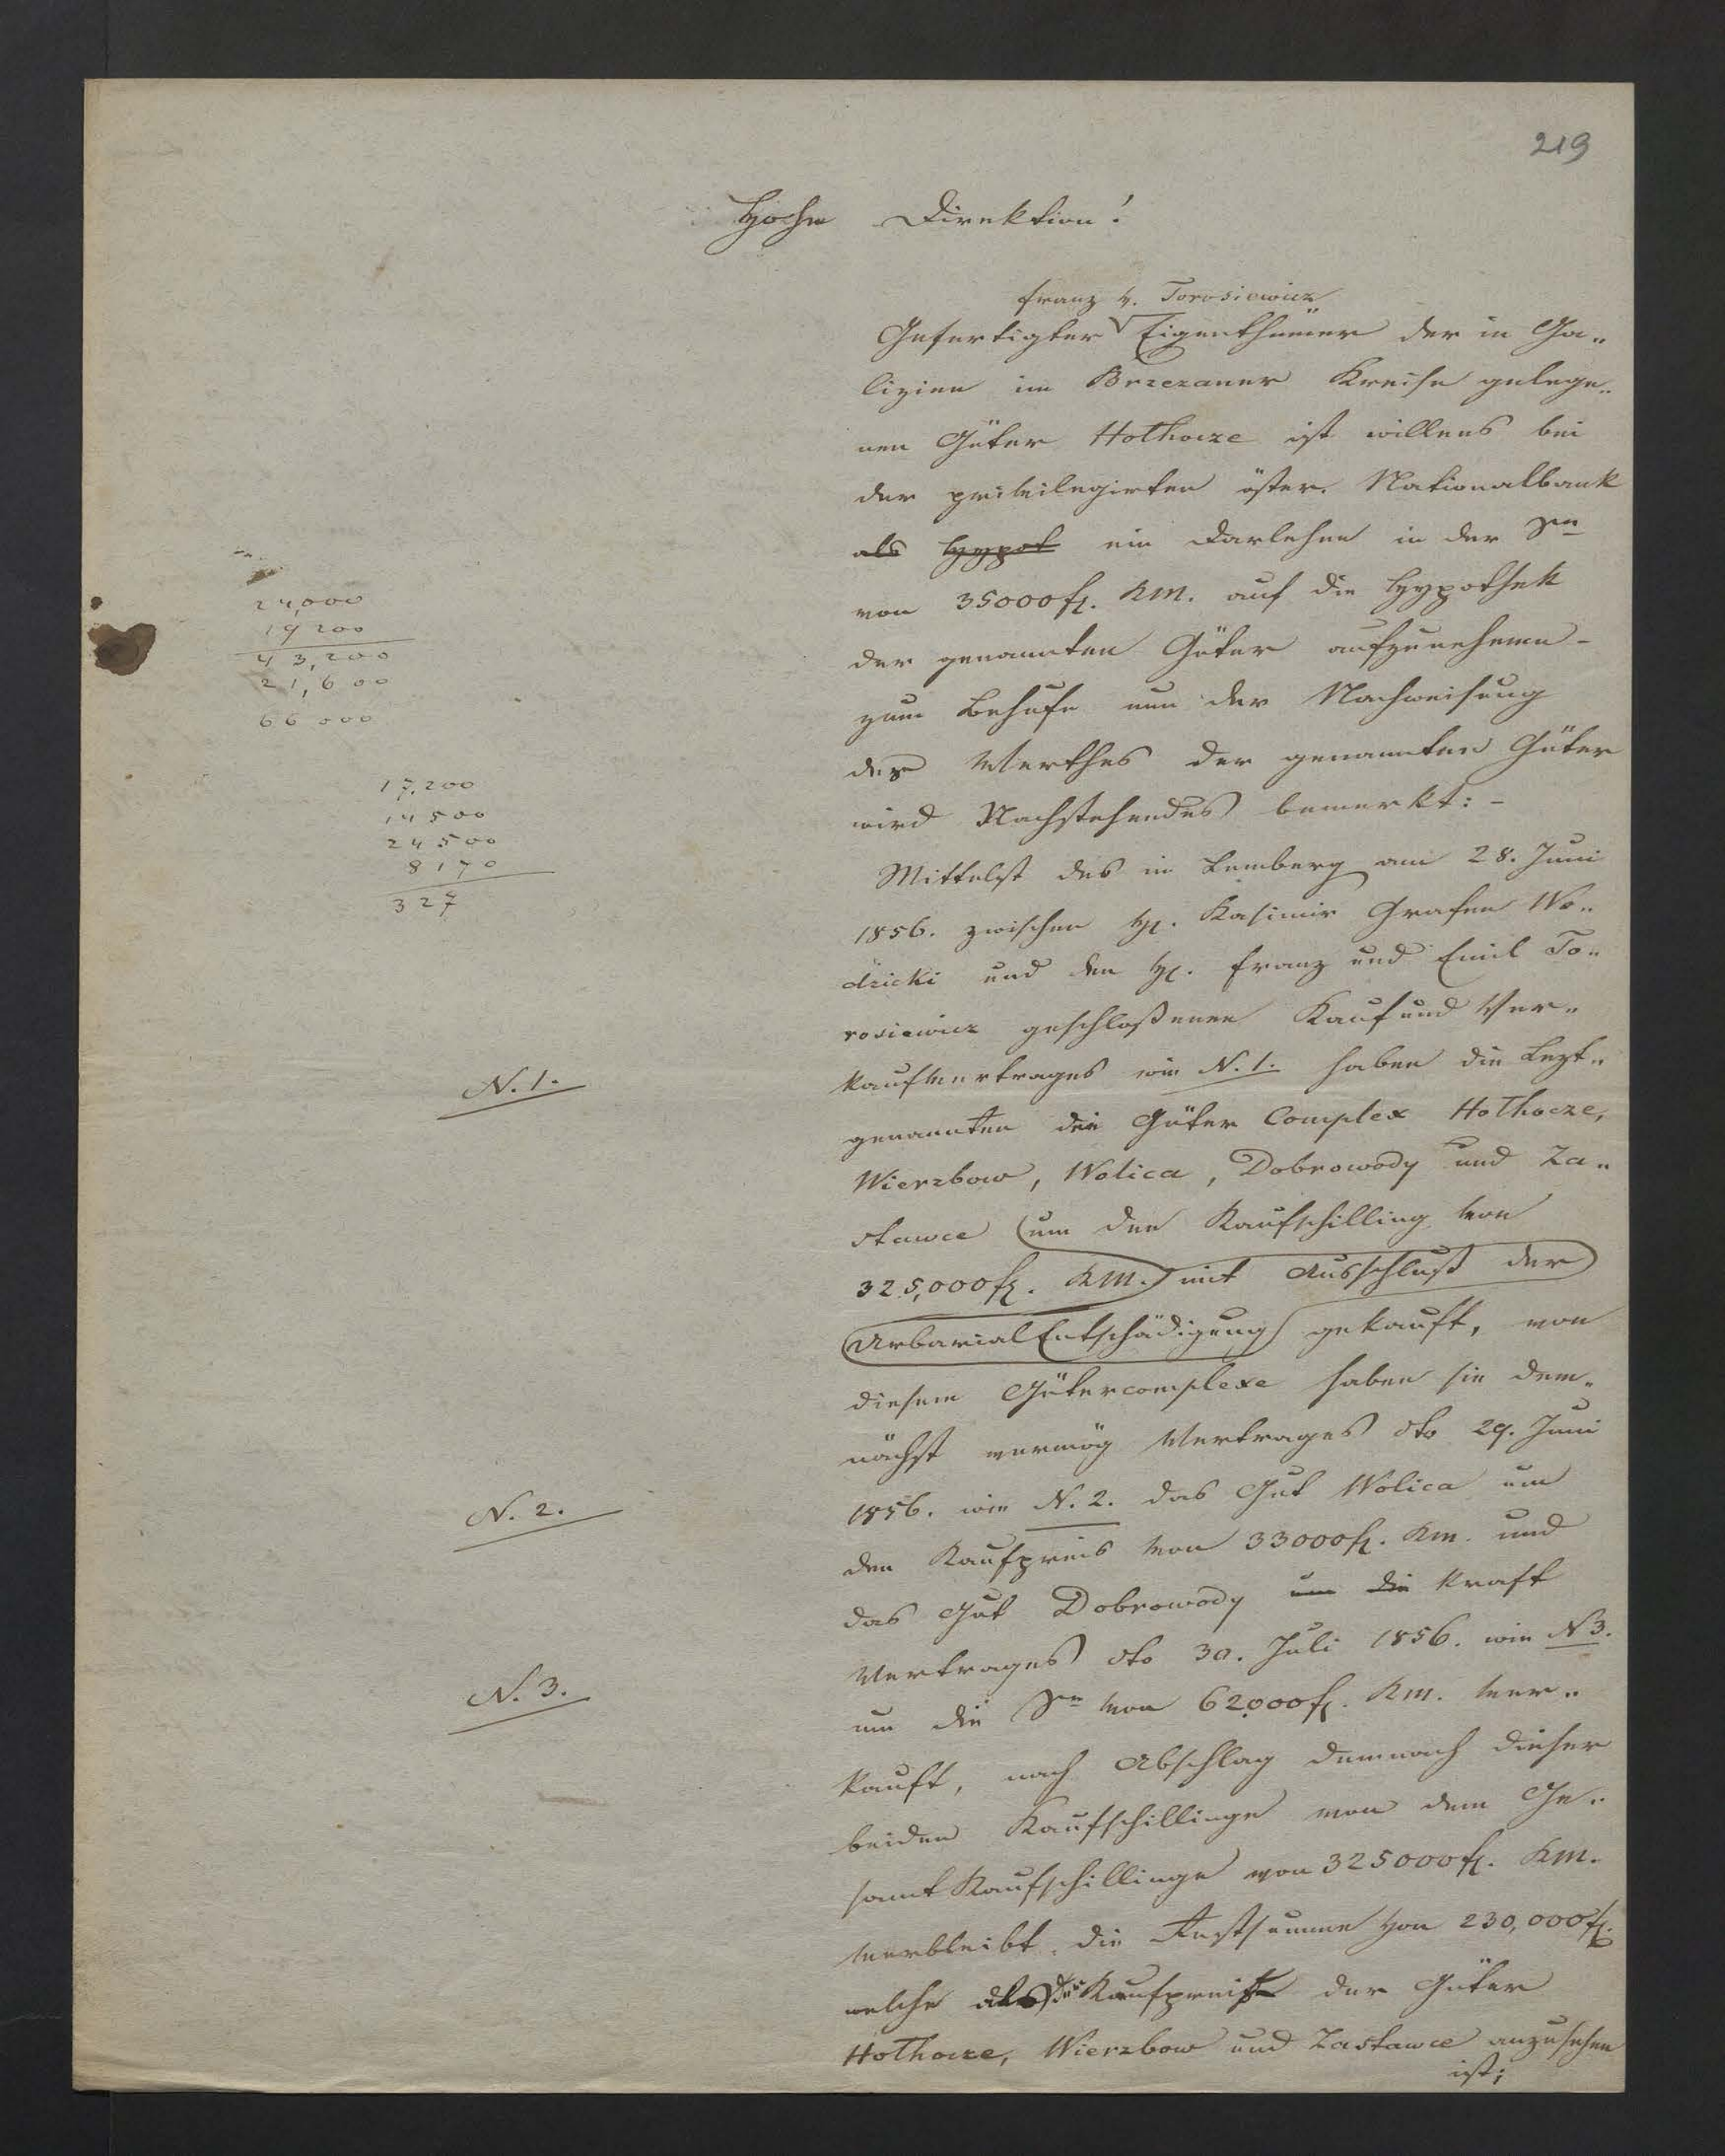 219
Hohe Direktion!
franz v. Torosiewicz
Gefertigter Eigenthümer der in Ga„
lizien im Brzezaner Kreise gelege„
nen Güter Hothocze ist willens bei
der privilegirten öster. Nationalbank
als Hypot ein Darlehen in der Sm
von 35000 f. KM. auf die Hypothek
der genannten Güter aufzunehmen -
zum Behufe nun der Nachweisung
des Werthes der genannten Güter
wird Nachstehendes bemerkt: -
24,000
19 200
43,200
21,600
66 000
17,200
14 500
24 500
8170
327
Mittelst des in Lemberg am 28. Juni
1856. zwischen H. Kasimir Grafen Wo„
dzicki und den H. Franz und Emil To„
rosiewicz geschloßenen Kauf und Ver„
kaufvertrages wie N. 1. haben die Lezt„
N. 1.
genannten die Güter Complex Hothocze,
Wierzbow, Wolica, Dobrowody und Za„
stawce um den Kaufschilling von
325,000 f. KM. mit Ausschluß der
Urbarial Entschädigung gekauft, von
diesem Gütercomplexe haben sie dem„
nächst vermög Vertrages dto 29. Juni
1856. wie N. 2. das Gut Wolica um
N. 2.
den Kaufpreis von 33000 f. KM. und
das Gut Dobrowody um die Kraft
Vertrages dto 30. Juli 1856. wie N 3.
N. 3.
um die Sm von 62000 f. KM. ver„
kauft, nach Abschlag demnach dieser
beiden Kaufschillinge von dem Ge„
samt Kaufschillinge von 325000 f. KM.
verbleibt die Restsumme von 230,000 f.
welche als Kaufpreis der Güter
Hothocze, Wierzbow und Zastawce anzusehen
ist;